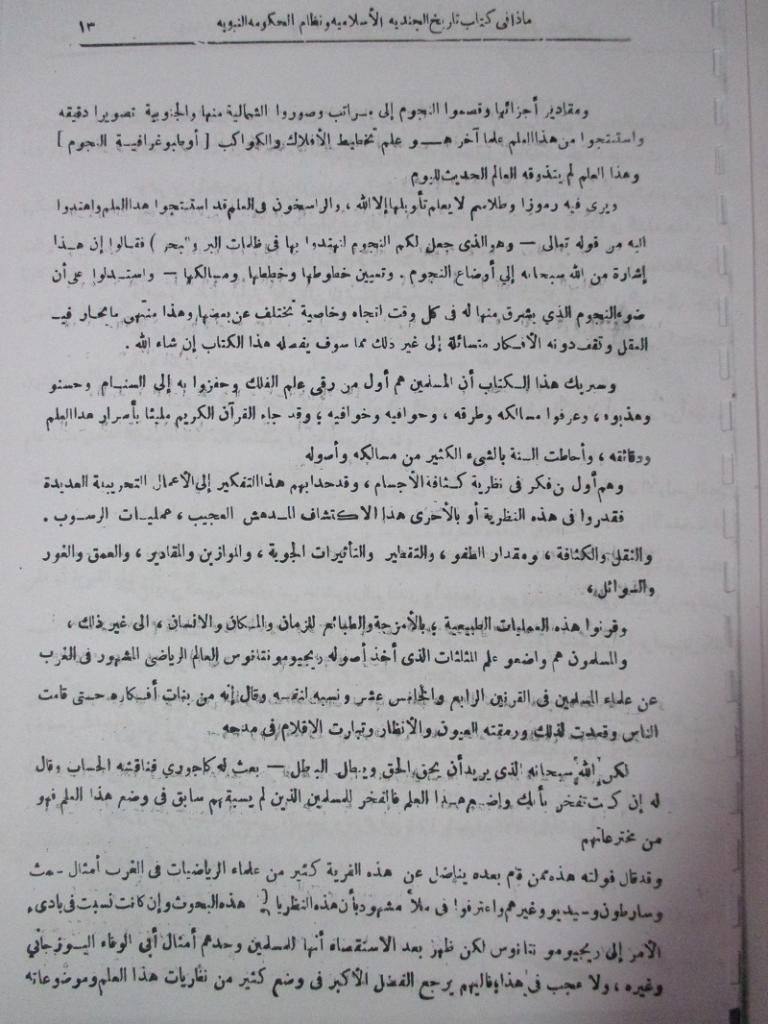 ماذا في كتاب تاريخ الجنديه الأسلاميه ونظام الحكومه النبويه
١٣
ومقادير أجزائها وقسموا النجوم إلى مراتب وصوروا الشمالية منها والجنوبية تصويرا دقيقه
واستنتجوا من هذا العلم علما آخر هـــو علم تخطيط الأفلاك والكواكب [ أوطبوغرافيــة النجوم ]
وهذا العلم لم يتذوقه العالم الحديث لليوم
ويرى فيه رموزا وطلاسم لا يعلم تأويلها إلا الله ، والراسخون فى العلم قد استنتجوا هذا العلم واهتدوا
اليه من قوله تعالى — وهو الذى جعل لكم النجوم لتهتدوا بها فى ظلمات البر والبحر ) فقالوا إن هــذا
إشارة من الله سبحانه إلي أوضاع النجوم . وتعيين خطوطها وخططها ومسالكها — واستــدلوا على أن
ضوء النجوم الذي يشرق منها له فى كل وقت اتجاه وخاصية تختلف عن بعضها وهذا منتهى مايحار فيــه
العقل وتقف دونه الأفــكار متسائلة إلى غير ذلك مما سوف يفصله هذا الكتاب إن شاء الله .
وسيريك هذا الــكتاب أن المسلمين هم أول من رقى علم الفلك وحفزوا به إلى السنــام وحسنو
وهذبوه ، وعرفوا مسالكه وطرقه ، وحوافيه وخوافيه ؛ وقد جاء القرآن الكريم مليئا بأسرار هذا العلم
ودقائقه ، وأحاطت السنة بالشىء الكثير من مسالكه وأصوله
وهم أول من فكر فى نظرية كــثافة الأجسام ، وقد حدا بهم هذا التفكير إلي الأعمال التجريبية العديدة
فقدروا فى هذه النظرية أو بالأحرى هذا الاكتشاف المــدهش العجيب ، عمليــات الرســوب .
والثقل والكثافة ، ومقدار الطفو ، والتقطير والتأثيرات الجوية ، والموازين والمقادير ، والعمق والغور
والسوائل ،
وقرنوا هذه العمليات الطبيعية ، بالأمزجة والطبائع للزمان والمــكان والانسان ، الى غير ذلك ،
والمسلمون هم واضعو علم المثلثات الذى أخذ أصوله ريجيومونتانوس العالم الرياضى المشهور فى الغرب
عن علماء المسلمين فى القرنين الرابع والخامس عشر ونسبه لنفسه وقال إنه من بنات أفــكاره حــتى قامت
الناس وقعدت لذلك ورمقته العيون والأنظار وتبارت الاقلام فى مدحه
لكن الله سبحانه الذى يريد أن يحق الحق ويبطل البطل — بعث له كاجوري فناقشه الحساب وقال
له إن كنت تفخر بأنك واضــع هــذا العلم فالفخر للمسلمين الذين لم يسبقهم سابق فى وضع هذا العلم فهو
من مخترعاتهم
وقد قال قولته هذه ممن قام بعده يناضل عن هذه الفرية كثير من علماء الرياضيات فى الغرب أمثال سمث
وسارطون وسيديو وغيرهم واعترفوا فى ملأ مشهود بأن هذه النظريا هذه البحوث وإن كانت نسبت فى بادىء
الأمر إلى ريجيومو نتانوس لكن ظهر بعد الاستقصاء أنها للمسلمين وحدهم أمثال أبي الوفاء البــوزجاني
وغيره ، ولا عجب فى هذا فاليهم يرجع الفضل الأكبر فى وضع كثير من نظريات هذا العلم وموضوعاته